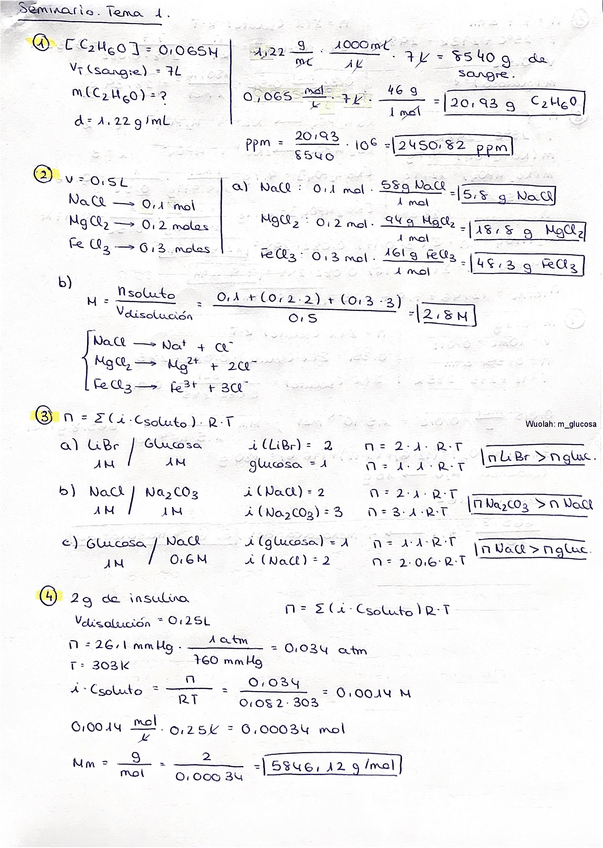 Seminario. Tema 1.
1 [C2H6O] = 0,065M
VT (sangre) = 7L
m(C2H6O) = ?
d = 1,22 g/mL
1,22 g/mL · 1000mL/1L · 7L = 8540 g de sangre.
0,065 mol/L · 7L · 46 g/1 mol = 20,93 g C2H6O
ppm = 20,93/8540 · 10^6 = 2450,82 ppm
2 V = 0,5L
NaCl → 0,1 mol
MgCl2 → 0,2 moles
FeCl3 → 0,3 moles
a) NaCl: 0,1 mol · 58g NaCl/1 mol = 5,8 g NaCl
MgCl2: 0,2 mol · 94g MgCl2/1 mol = 18,8 g MgCl2
FeCl3: 0,3 mol · 161g FeCl3/1 mol = 48,3 g FeCl3
b)
M = nsoluto/Vdisolución = 0,1 + (0,2·2) + (0,3·3)/0,5 = 2,8M
NaCl → Na+ + Cl-
MgCl2 → Mg2+ + 2Cl-
FeCl3 → Fe3+ + 3Cl-
3 Π = Σ(i·Csoluto)·R·T
Wuolah: m_glucosa
a) LiBr 1M / Glucosa 1M i(LiBr) = 2 Π = 2·1·R·T
glucosa = 1 Π = 1·1·R·T ΠLiBr > Πgluc.
b) NaCl 1M / Na2CO3 1M i(NaCl) = 2 Π = 2·1·R·T
i(Na2CO3) = 3 Π = 3·1·R·T ΠNa2CO3 > ΠNaCl
c) Glucosa 1M / NaCl 0,6M i(glucosa) = 1 Π = 1·1·R·T
i(NaCl) = 2 Π = 2·0,6·R·T ΠNaCl > Πgluc.
4 2g de insulina
Vdisolución = 0,25L
Π = Σ(i·Csoluto)R·T
Π = 26,1 mmHg · 1 atm/760 mmHg = 0,034 atm
T = 303K
i·Csoluto = Π/RT = 0,034/0,082·303 = 0,0014 M
0,0014 mol/L · 0,25L = 0,00034 mol
Mm = g/mol = 2/0,00034 = 5846,12 g/mol